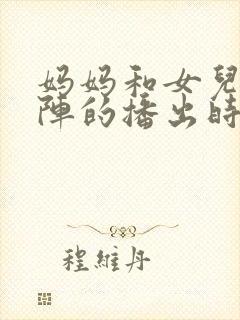 妈妈和女兒
陣的播出時
程維丹